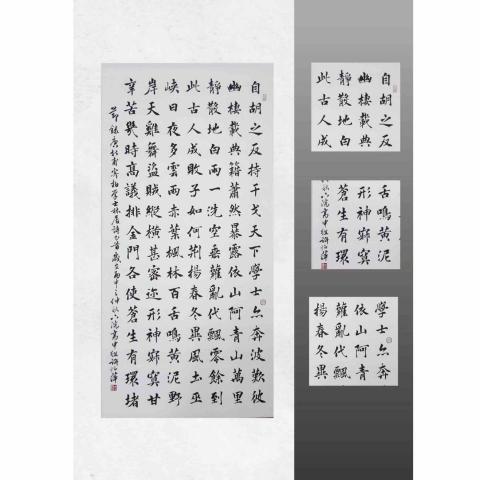 自胡之反持干戈天下學士亦奔波歎彼
幽棲載典籍蕭然暴露依山阿青山萬里
靜散地白雨一洗空垂蘿亂代飄零餘到
此古人成敗子如何荊揚春冬異風土巫
峽日夜多雲雨赤葉楓林百舌鳴黃泥野
岸天雞舞盜賊縱橫甚密邇形神寂寞甘
辛苦幾時高議排金門各使蒼生有環堵
節錄唐杜甫寄柏學士林居詩乙首歲在丙申之仲秋六院高中組許
自胡之反
幽棲載典
靜散地白
此古人成
舌鳴黃泥
形神寂寞
蒼生有環
六院高中組許
學士亦奔
依山阿青
蘿亂代飄
揚春冬異